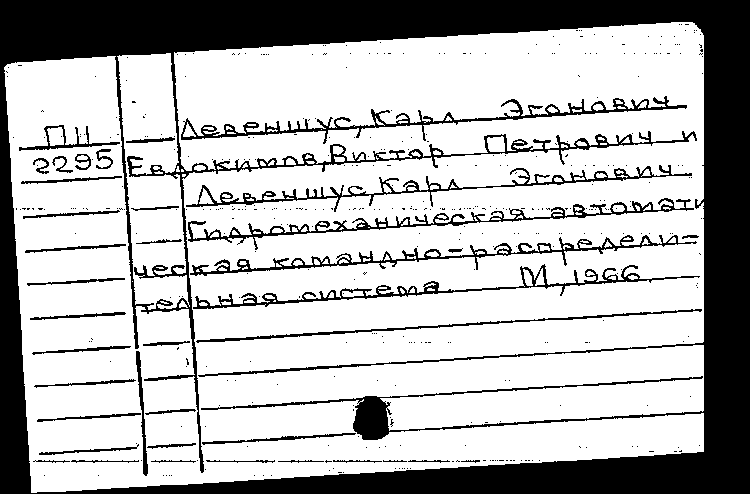 Левеншус, Карл Эгонович
П11
2295
Евдокимов, Виктор Петрович и
Левеншус, Карл Эгонович
Гидромеханическая автомати
ческая командно-распредели=
тельная система. М, 1966.